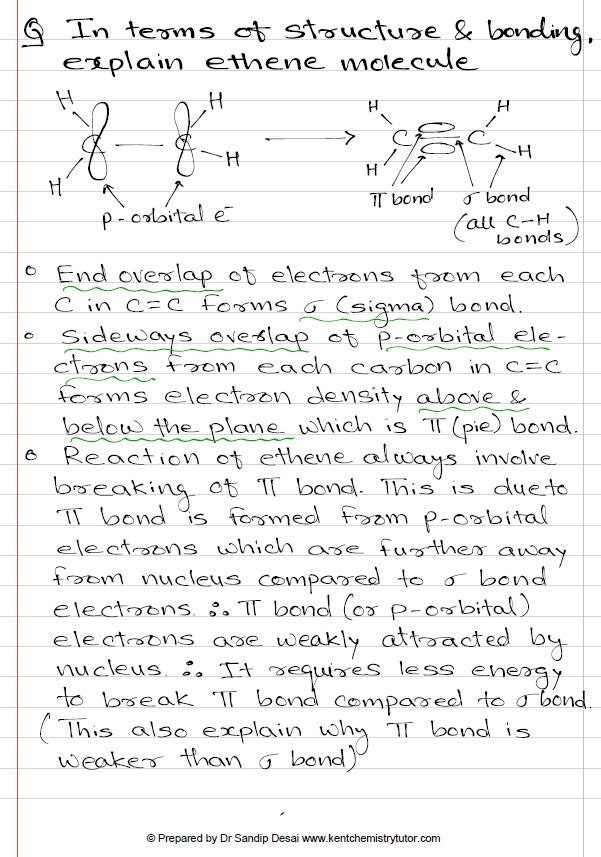 Q In terms of structure & bonding,
explain ethene molecule
H H H H
C — C → C C
H H H H
p-orbital e⁻ π bond σ bond
(all C–H
bonds)
o End overlap of electrons from each
C in C=C forms σ (sigma) bond.
o Sideways overlap of p-orbital ele-
ctrons from each carbon in C=C
forms electron density above &
below the plane which is π (pie) bond.
o Reaction of ethene always involve
breaking of π bond. This is due to
π bond is formed from p-orbital
electrons which are further away
from nucleus compared to σ bond
electrons. ∴ π bond (or p-orbital)
electrons are weakly attracted by
nucleus. ∴ It requires less energy
to break π bond compared to σ bond.
(This also explain why π bond is
weaker than σ bond)
© Prepared by Dr Sandip Desai www.kentchemistrytutor.com